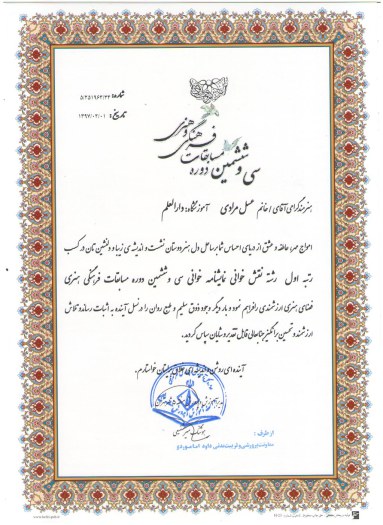 شماره: ۵/۲۵۱۹۶۳/۳۲
تاریخ: ۱۳۹۷/۰۲/۰۱
سی و ششمین دوره مسابقات فرهنگی و هنری
هنرمند گرامی آقای / خانم عسل مرادی آموزشگاه: دارالعلم
امواج مهر، عاطفه و عشق از دریای احساس شما بر ساحل دل هنردوستان نشست و اندیشه‌ی زیبا و دلنشین تان در کسب
رتبه اول رشته نقش خوانی نمایشنامه خوانی سی و ششمین دوره مسابقات فرهنگی هنری
فضای هنری ارزشمندی را فراهم نمود و بار دیگر وجود ذوق سلیم و طبع روان را در نسل آینده به اثبات رساند و تلاش
ارزشمند و تحسین برانگیز جنابعالی قابل تقدیر و شایان سپاس گردید.
آینده ای روشن و اندیشه ای خلاق برایتان خواستارم.
از طرف:
معاونت پرورشی و تربیت بدنی